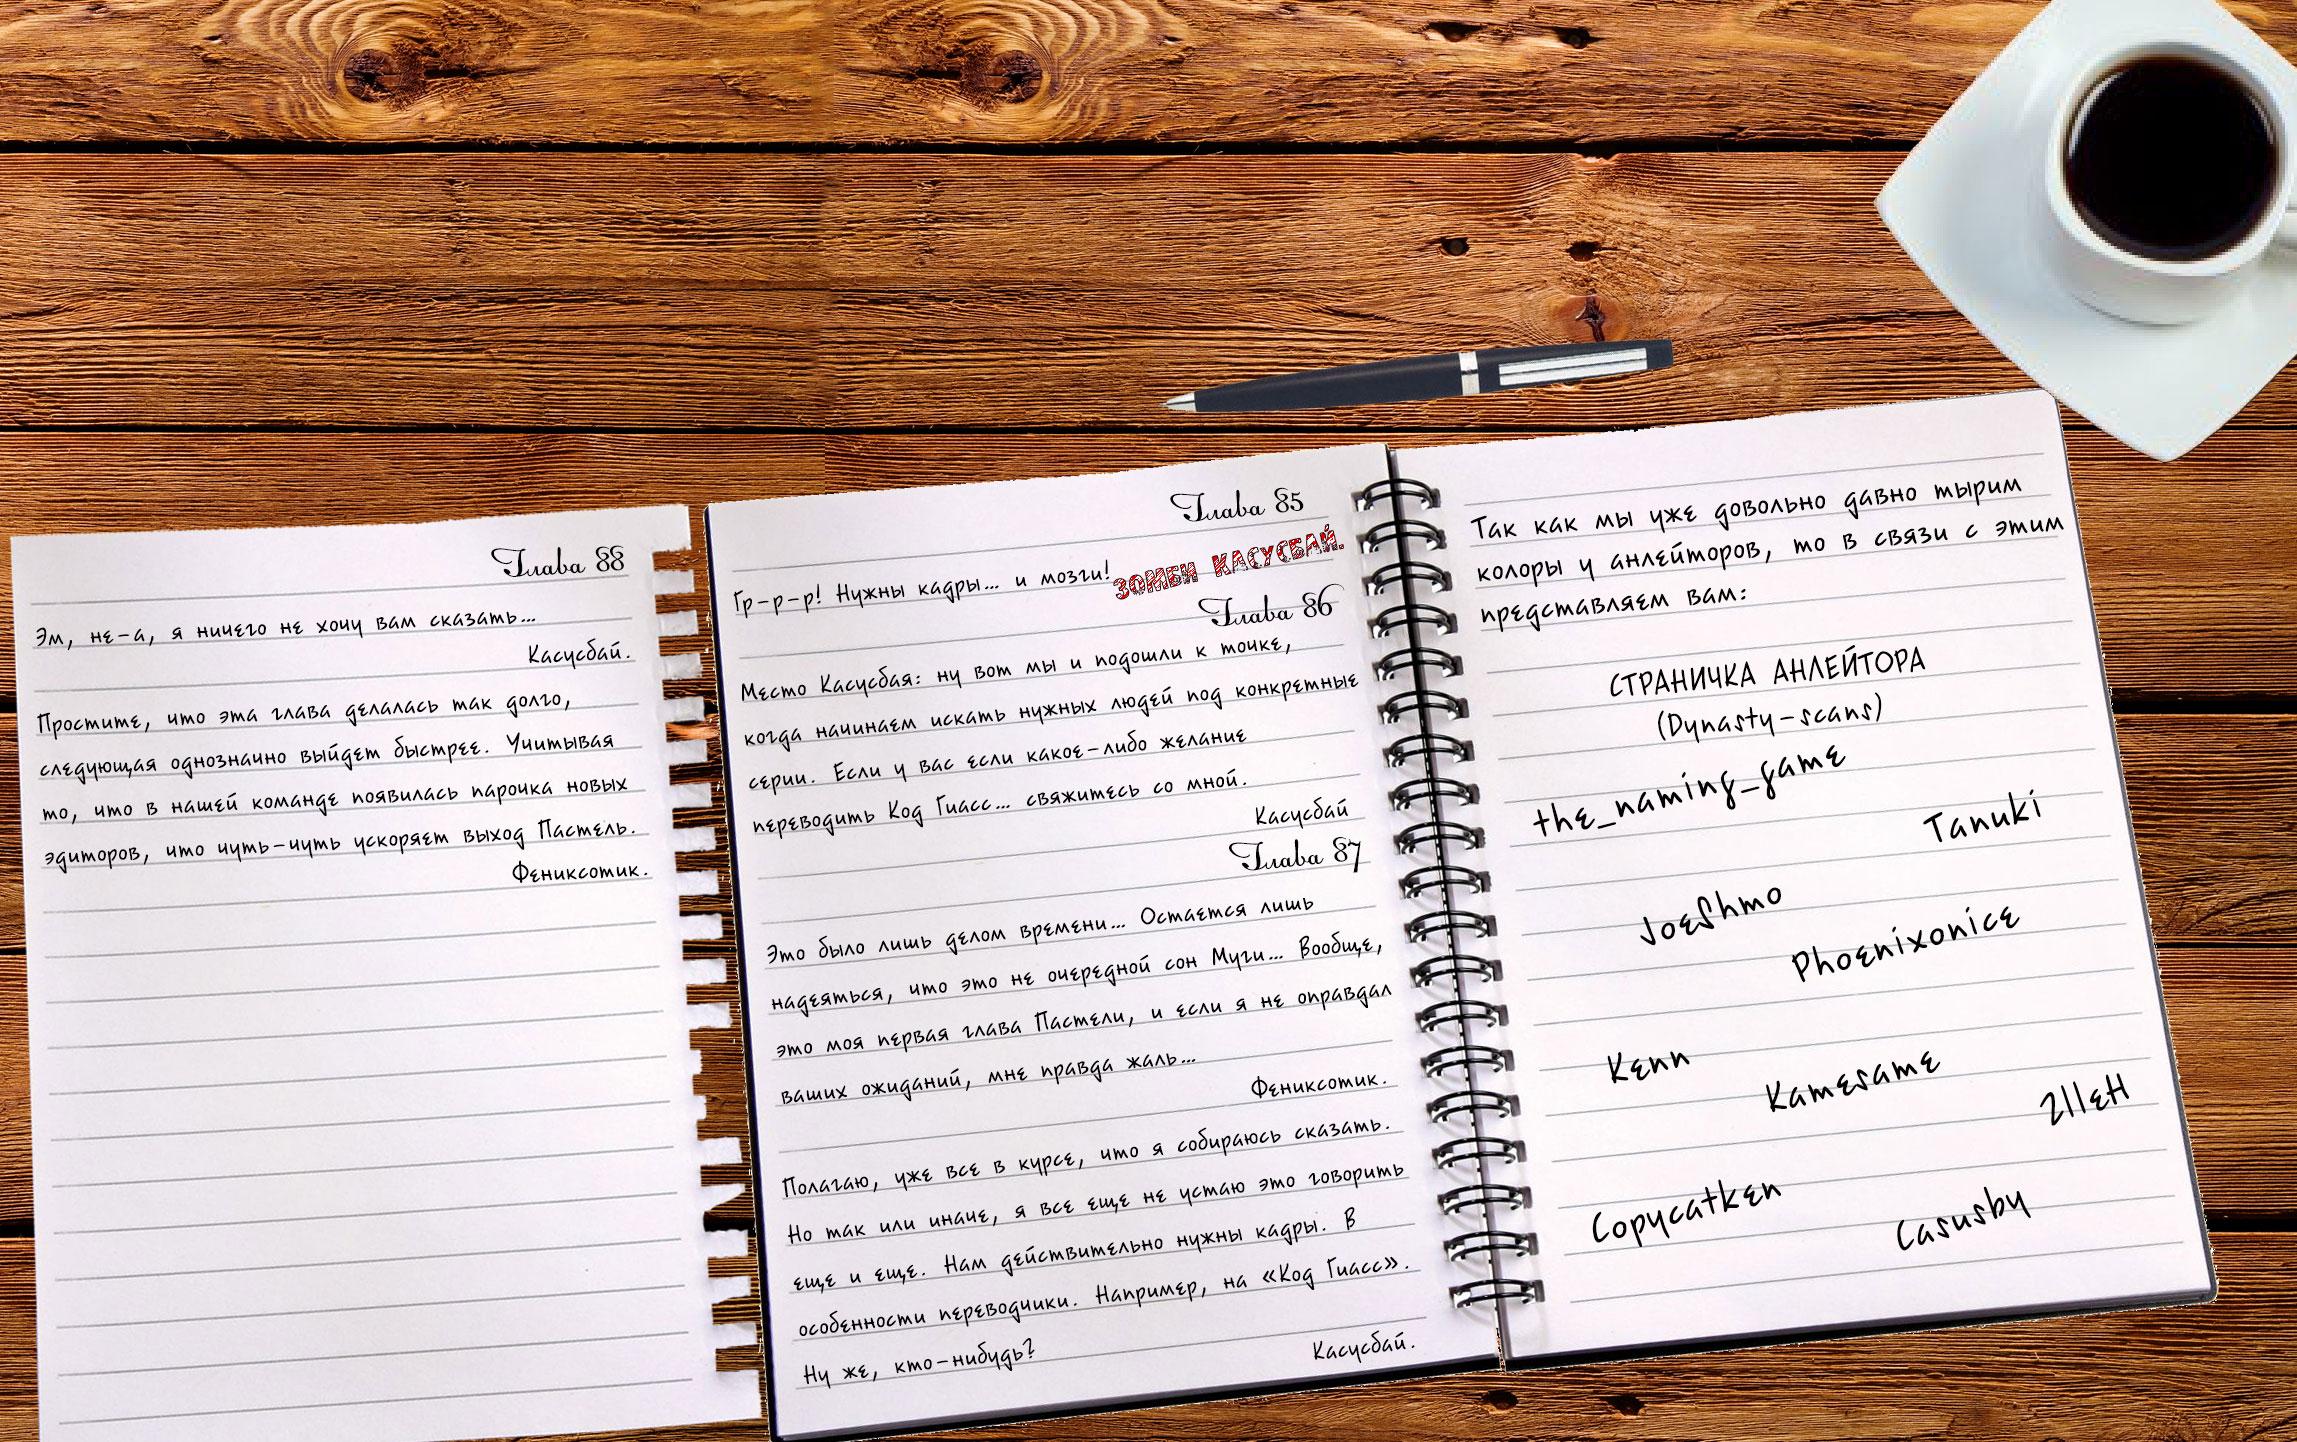 Глава 88
Эм, не-а, я ничего не хочу вам сказать...
Касусбай.
Простите, что эта глава делалась так долго,
следующая однозначно выйдет быстрее. Учитывая
то, что в нашей команде появилась парочка новых
эдиторов, что чуть-чуть ускоряет выход Пастель.
Фениксотик.
Глава 85
Гр-р-р! Нужны кадры... и мозги!
ЗОМБИ КАСУСБАЙ.
Глава 86
Место Касусбая: ну вот мы и подошли к точке,
когда начинаем искать нужных людей под конкретные
серии. Если у вас если какое-либо желание
переводить Код Гиасс... свяжитесь со мной.
Касусбай
Глава 87
Это было лишь делом времени... Остается лишь
надеяться, что это не очередной сон Муги... Вообще,
это моя первая глава Пастели, и если я не оправдал
ваших ожиданий, мне правда жаль...
Фениксотик.
Полагаю, уже все в курсе, что я собираюсь сказать.
Но так или иначе, я все еще не устаю это говорить
еще и еще. Нам действительно нужны кадры. В
особенности переводчики. Например, на «Код Гиасс».
Ну же, кто-нибудь?
Касусбай.
Так как мы уже довольно давно тырим
колоры у анлейторов, то в связи с этим
представляем вам:
СТРАНИЧКА АНЛЕЙТОРА
(Dynasty-scans)
the_naming_game
Tanuki
JoeShmo
Phoenixonice
Kenn
Kamesame
2lleH
Copycatken
Casusby